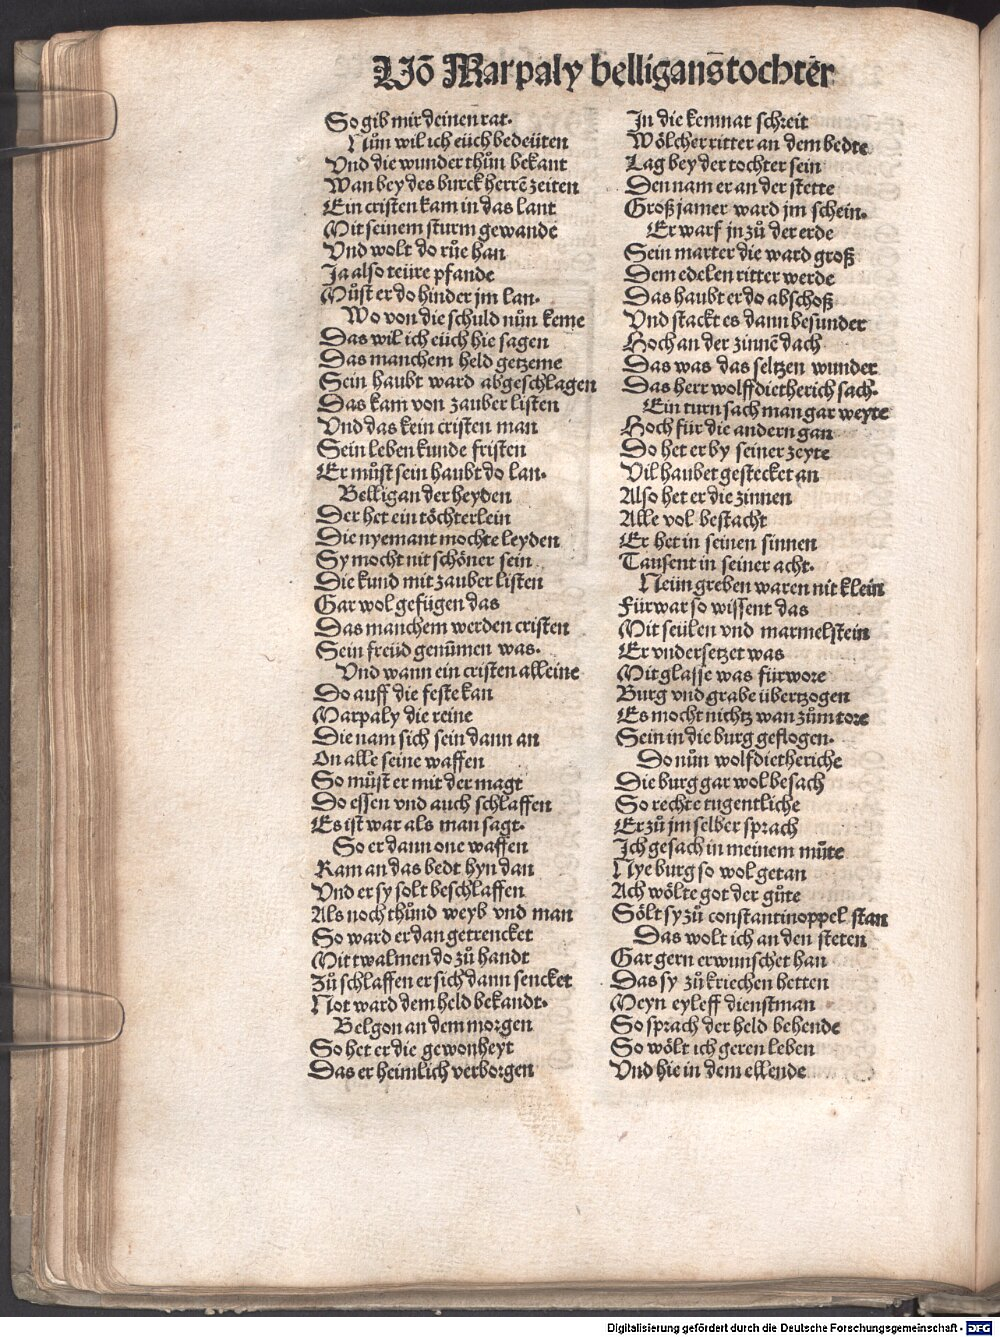 Uō Marpaly belligans̄ tochter̄
So gib mir deinen rat·
Nůn wil ich eüch bedeüten
Vnd die wunder thůn bekant
Wan bey des burck herrē zeiten
Ein cristen kam in das lant
Mit seinem sturm gewande
Vnd wolt do růe han
Ja also teüre pfande
Můst er do hinder jm lan·
Wo von die schuld nůn keme
Das wil ich eüch hie sagen
Das manchem held getzeme
Sein haubt ward abgeschlagen
Das kam von zauber listen
Vnd das kein cristen man
Sein leben kunde fristen
Er můst sein haubt do lan·
Belligan der heyden
Der het ein töchterlein
Die nyemant mochte leyden
Sy mocht nit schöner sein
Die kund mit zauber listen
Gar wol gefügen das
Das manchem werden cristen
Sein freüd genūmen was·
Vnd wann ein cristen alleine
Do auff die feste kan
Marpaly die reine
Die nam sich sein dann an
On alle seine waffen
So můst er mit der magt
Do essen vnd auch schlaffen
Es ist war als man sagt·
So er dann one waffen
Kam an das bedt hyn dan
Vnd er sy solt beschlaffen
Als noch thůnd weyb vnd man
So ward er dan getrencket
Mit twalmen do zů handt
Zů schlaffen er sich dann sencket
Not ward dem held bekandt·
Belgon an dem morgen
So het er die gewonheyt
Das er heimlich verborgen
In die kemnat schreit
Wölcher ritter an dem bedte
Lag bey der tochter sein
Den nam er an der stette
Groß jamer ward jm schein·
Er warf jn zů der erde
Sein marter die ward groß
Dem edelen ritter werde
Das haubt er do abschoß
Vnd stackt es dann besunder
Hoch an der zinnē dach
Das was das seltzen wunder
Das herr wolffdietherich sach·
Ein turn sach man gar weyte
Hoch für die andern gan
Do het er by seiner zeyte
Vil haubet gestecket an
Also het er die zinnen
Alle vol bestacht
Er het in seinen sinnen
Tausent in seiner acht·
Neün greben waren nit klein
Fürwar so wissent das
Mit seülen vnd marmelstein
Er vndersetzet was
Mit glasse was fürwore
Burg vnd grabe übertzogen
Es mocht nichtz wan zům tore
Sein in die burg geflogen·
Do nůn wolfdietheriche
Die burg gar wol besach
So rechte tugentliche
Er zů jm selber sprach
Ich gesach in meinem můte
Nye burg so wol getan
Ach wölte got der gůte
Sölt sy zů constantinoppel stan
Das wolt ich an den steten
Gar gern erwunschet han
Das sy zů kriechen hetten
Meyn eyleff dienstman
So sprach der held behende
So wölt ich geren leben
Vnd hie in dem ellende
Digitalisierung gefördert durch die Deutsche Forschungsgemeinschaft - DFG